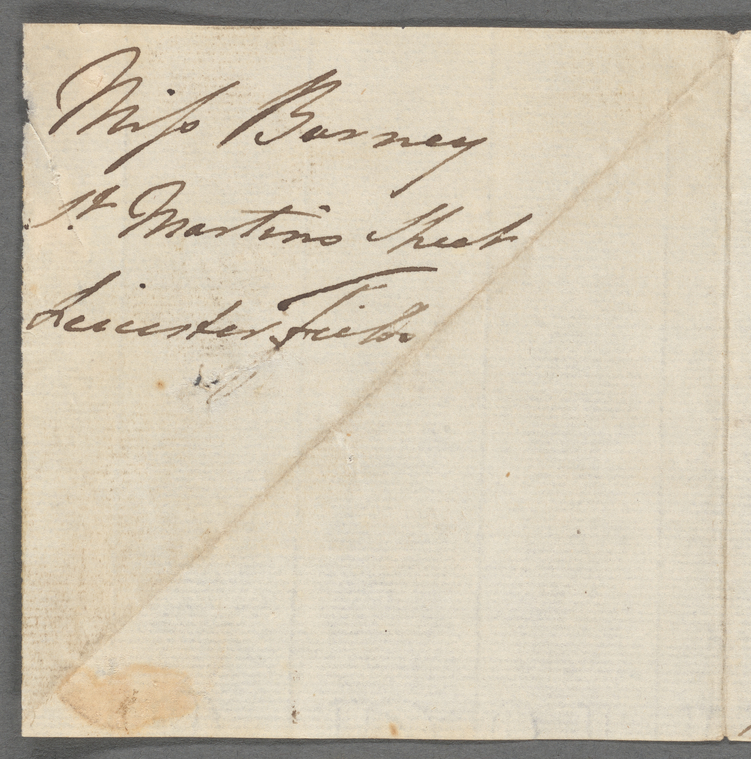 Miss Burney
St Martins Street
Leicester Fields